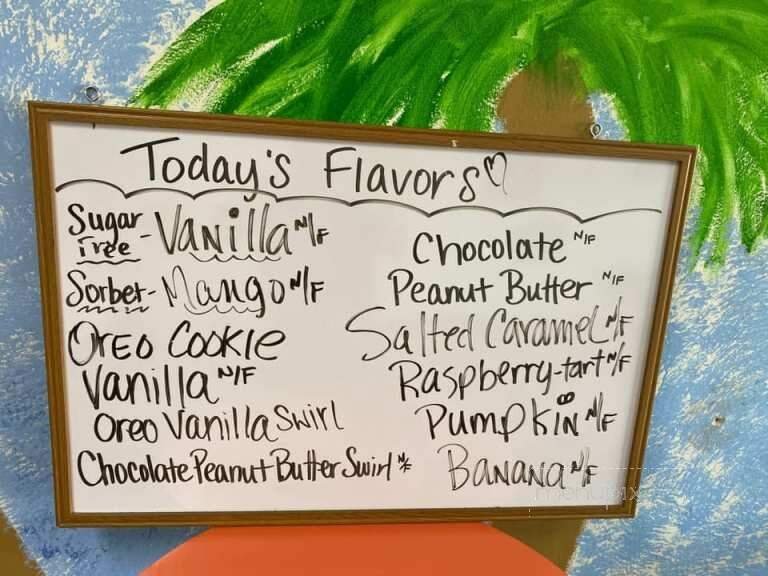 Today's Flavors
Sugar Free - Vanilla N/F
Sorbet - Mango N/F
Oreo Cookie
Vanilla N/F
Oreo Vanilla Swirl
Chocolate Peanut Butter Swirl N/F
Chocolate N/F
Peanut Butter N/F
Salted Caramel N/F
Raspberry-tart N/F
Pumpkin N/F
Banana N/F
menupix